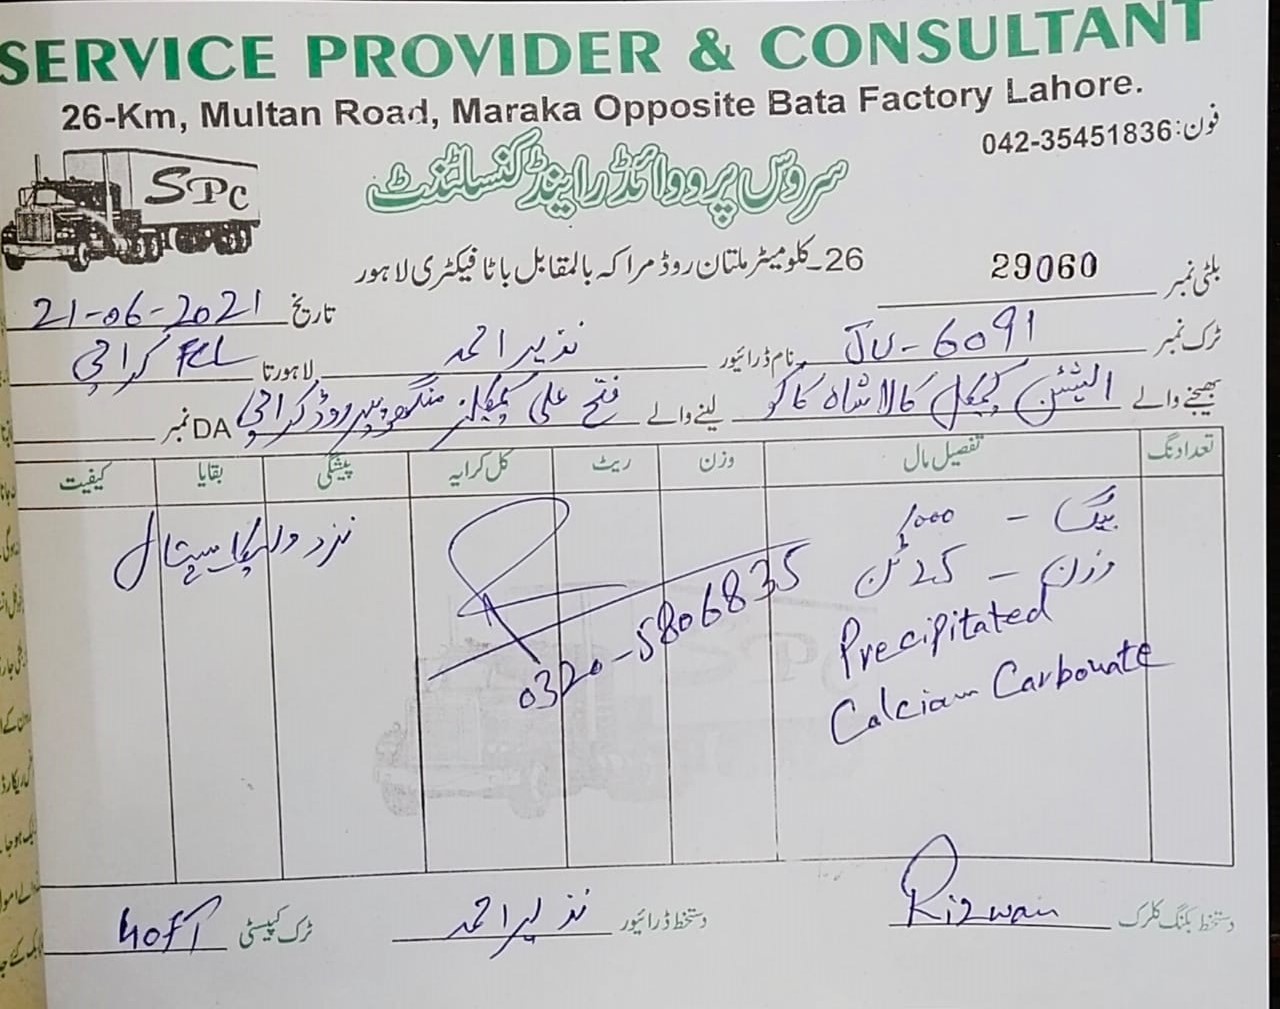 SERVICE PROVIDER & CONSULTANT
26-Km, Multan Road, Maraka Opposite Bata Factory Lahore.
فون: 042-35451836
SPC
سروس پرووائڈر اینڈ کنسلٹنٹ
26۔کلومیٹر ملتان روڈ مراکہ بالمقابل باٹا فیکٹری لاہور
بلٹی نمبر 29060
تاریخ 21-06-2021
ٹرک نمبر JU-6091 نام ڈرائیور نذیر احمد لاہور تا FCL کراچی
بھیجنے والے کیمیکل کالا شاہ کاکو لینے والے فتح علی کیمیکلز منگھوپیر روڈ کراچی DA نمبر
تعداد نگ تفصیل مال وزن ریٹ کل کرایہ پیشگی بقایا کیفیت
بیگ - 1000
وزن - 25 ٹن
Precipitated
Calcium Carbonate
0320-5806835
نزد ولیکا ہسپتال
دستخط بکنگ کلرک Rizwan دستخط ڈرائیور نذیر احمد ٹرک کپیسٹی 40FT